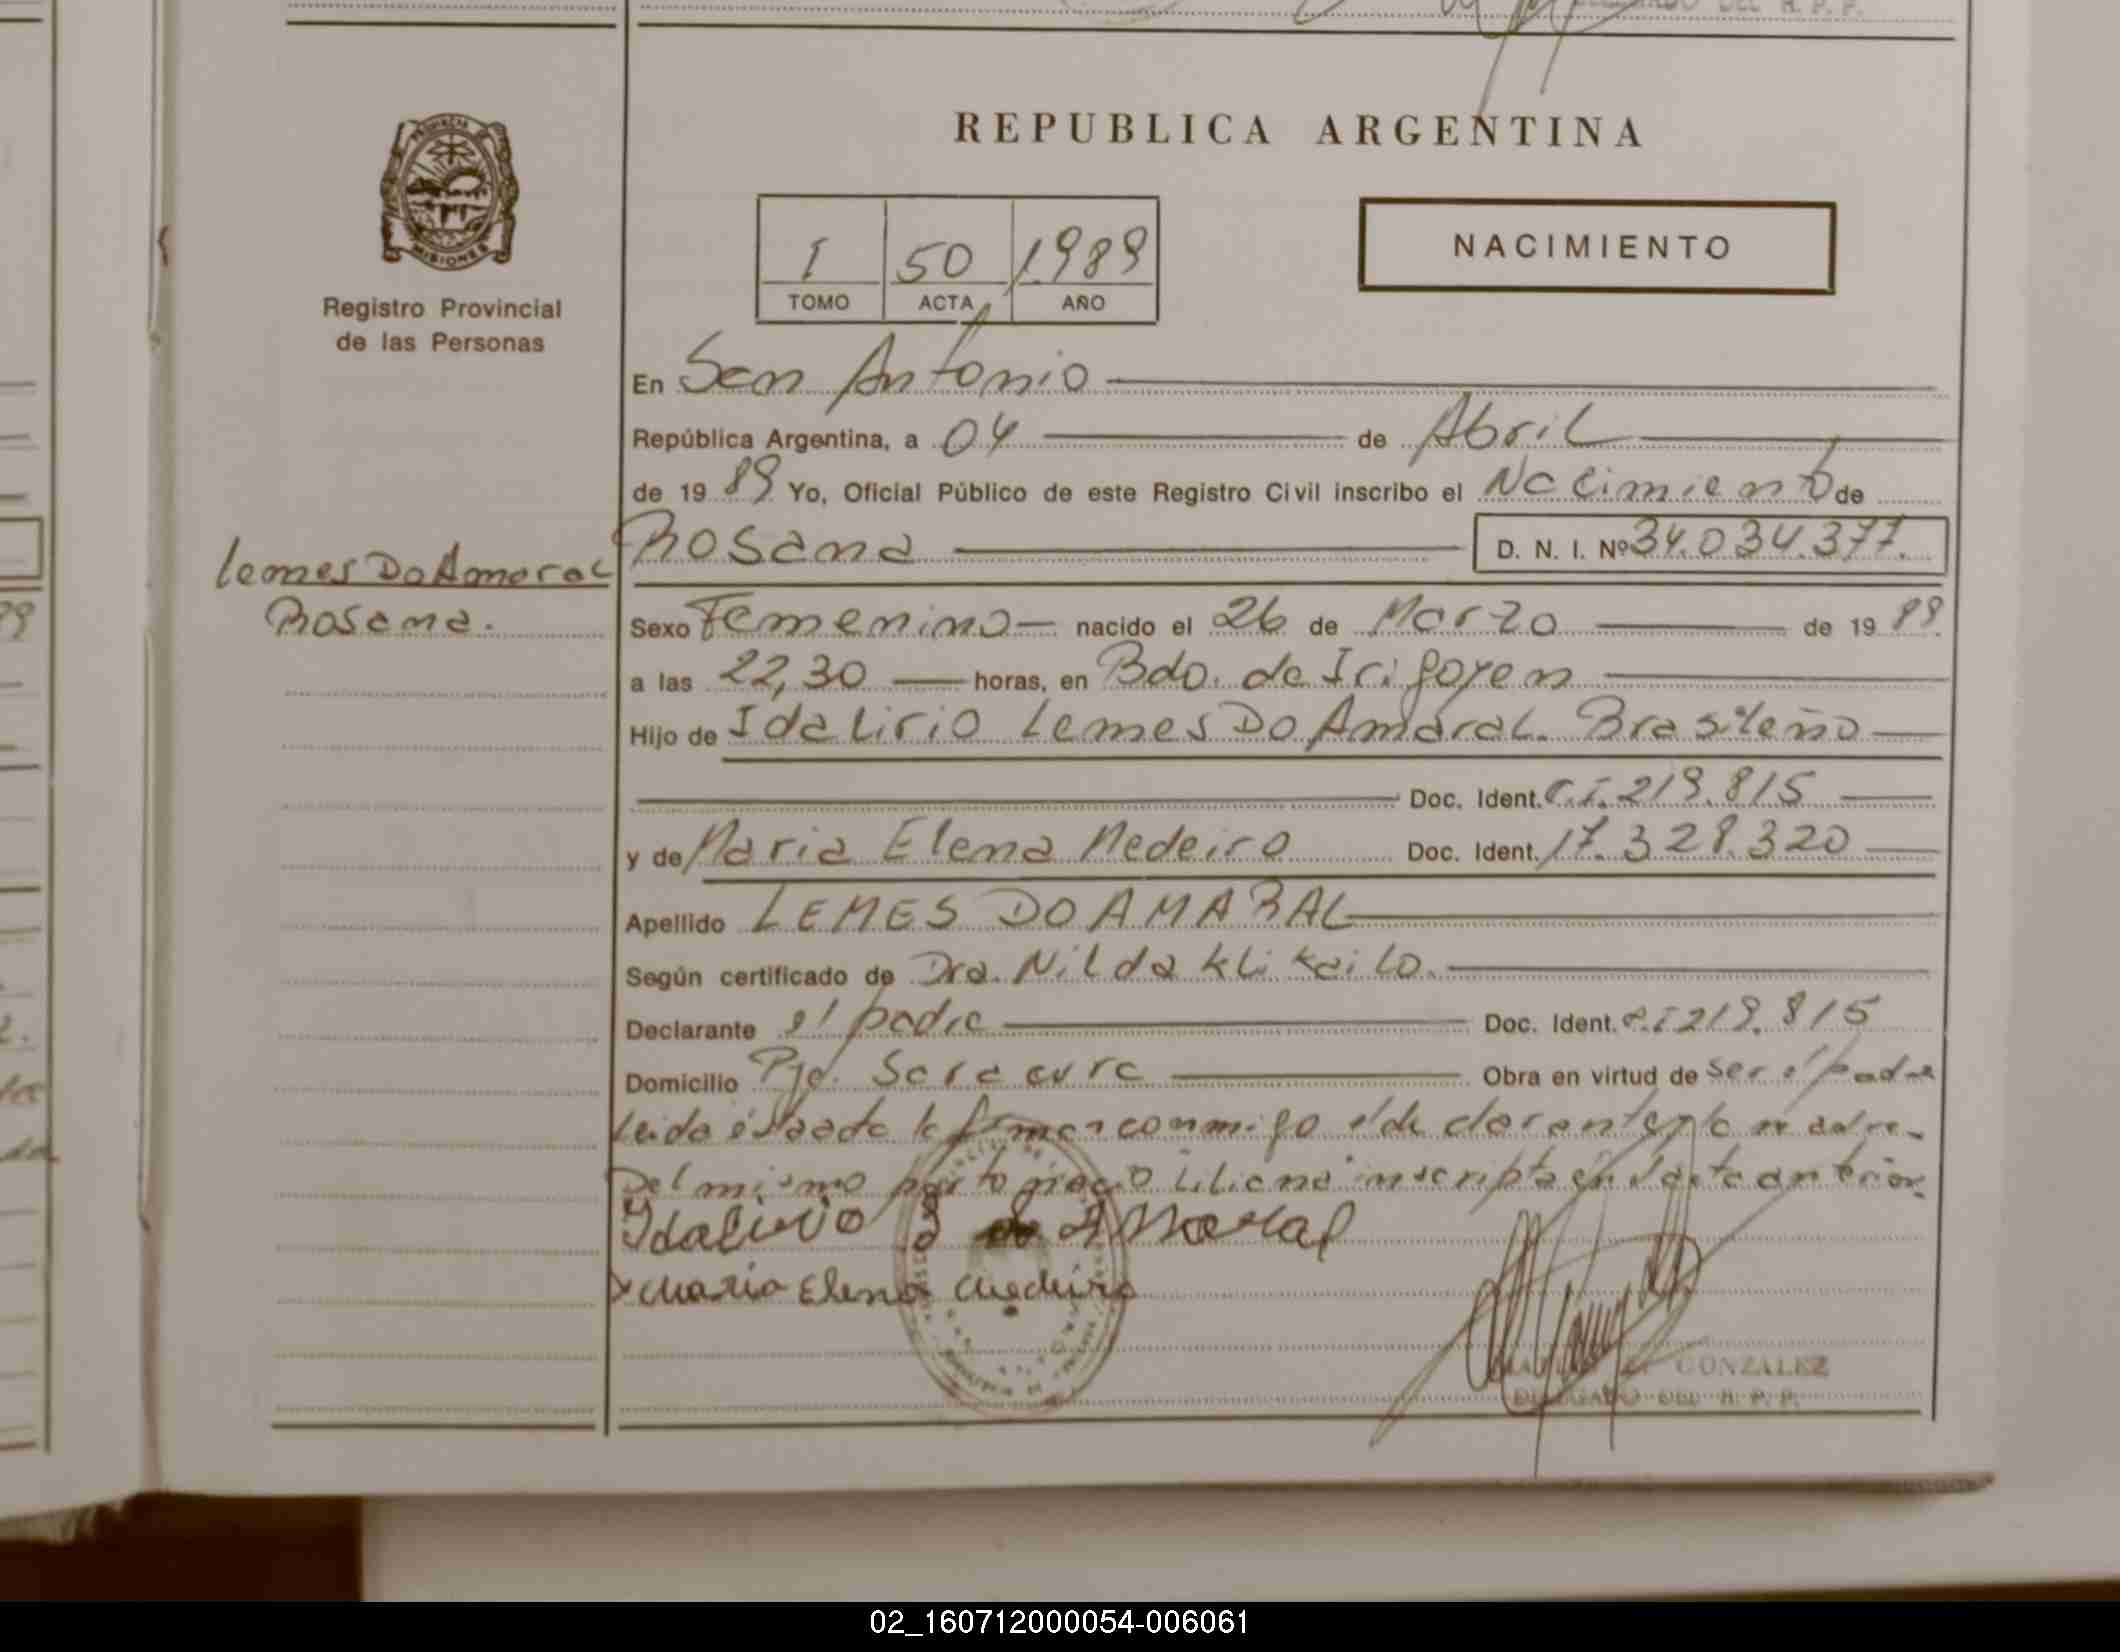 DEL R. P. P.
REPUBLICA ARGENTINA
PROVINCIA DE
MISIONES
Registro Provincial
de las Personas
I 50 1989
TOMO ACTA AÑO
NACIMIENTO
En San Antonio
República Argentina, a 04 de Abril
de 19 89 Yo, Oficial Público de este Registro Civil inscribo el Nacimiento de
Rosana D. N. I. Nº 34.034.377.
Lemes Do Amaral
Rosana.
Sexo Femenino nacido el 26 de Marzo de 19 89
a las 22,30 horas, en Bdo. de Irigoyen
Hijo de Idalirio Lemes Do Amaral. Brasileño
Doc. Ident. C.I. 219.815
y de Maria Elena Medeiro Doc. Ident. 17.328.320
Apellido LEMES DO AMARAL
Según certificado de Dra. Nilda Klikailo.
Declarante el padre Doc. Ident. C.I 219.815
Domicilio Pje. Saracura Obra en virtud de ser el padre
Leida el acta la firman conmigo el declarante y la madre.
Del mismo parto nacio Liliana inscripta en el acta anterior.
Idalirio L do Amaral
x Maria Elena Medeiro
GONZALEZ
DELEGADO DEL R. P. P.
02_160712000054-006061